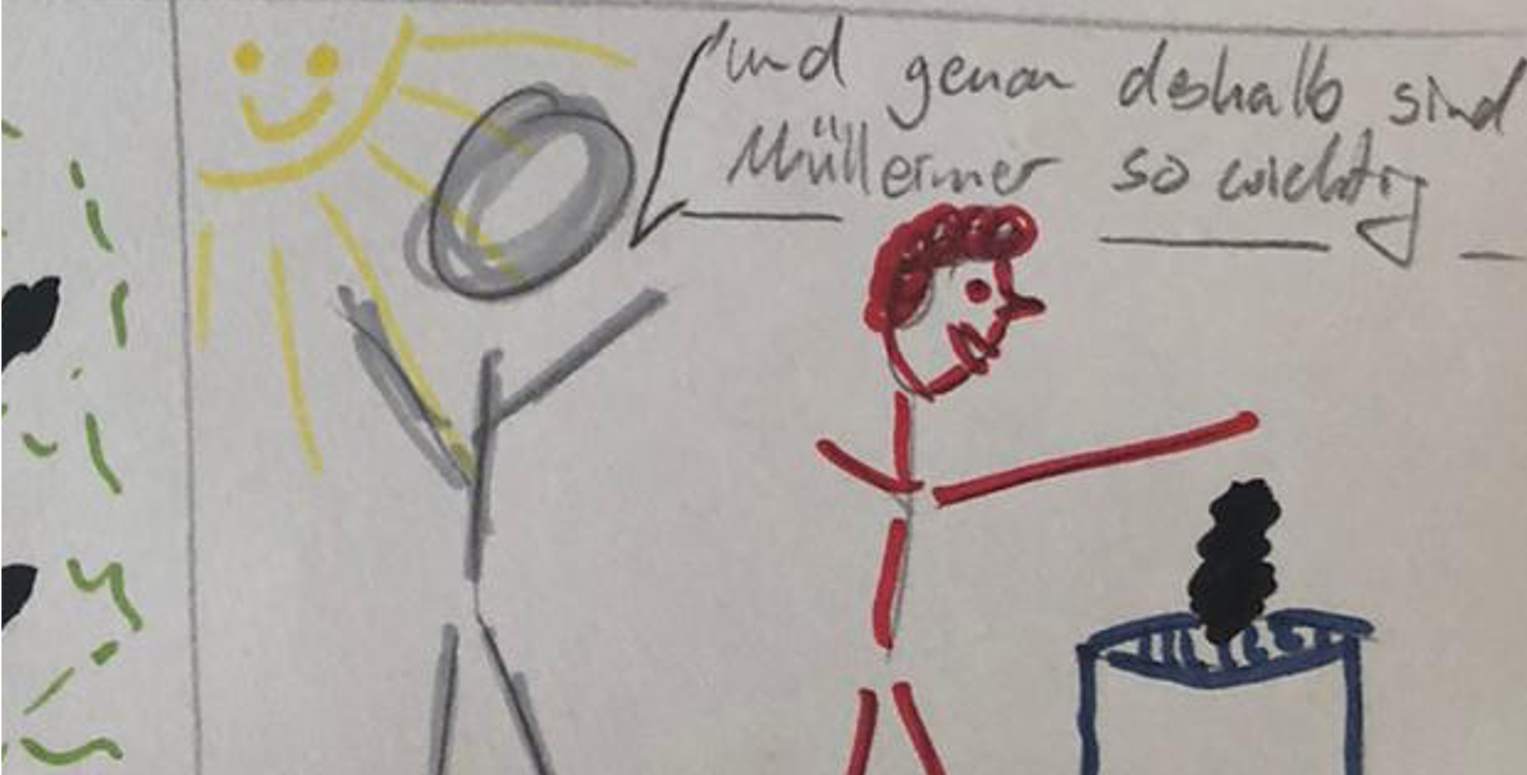 und genau deshalb sind
Mülleimer so wichtig